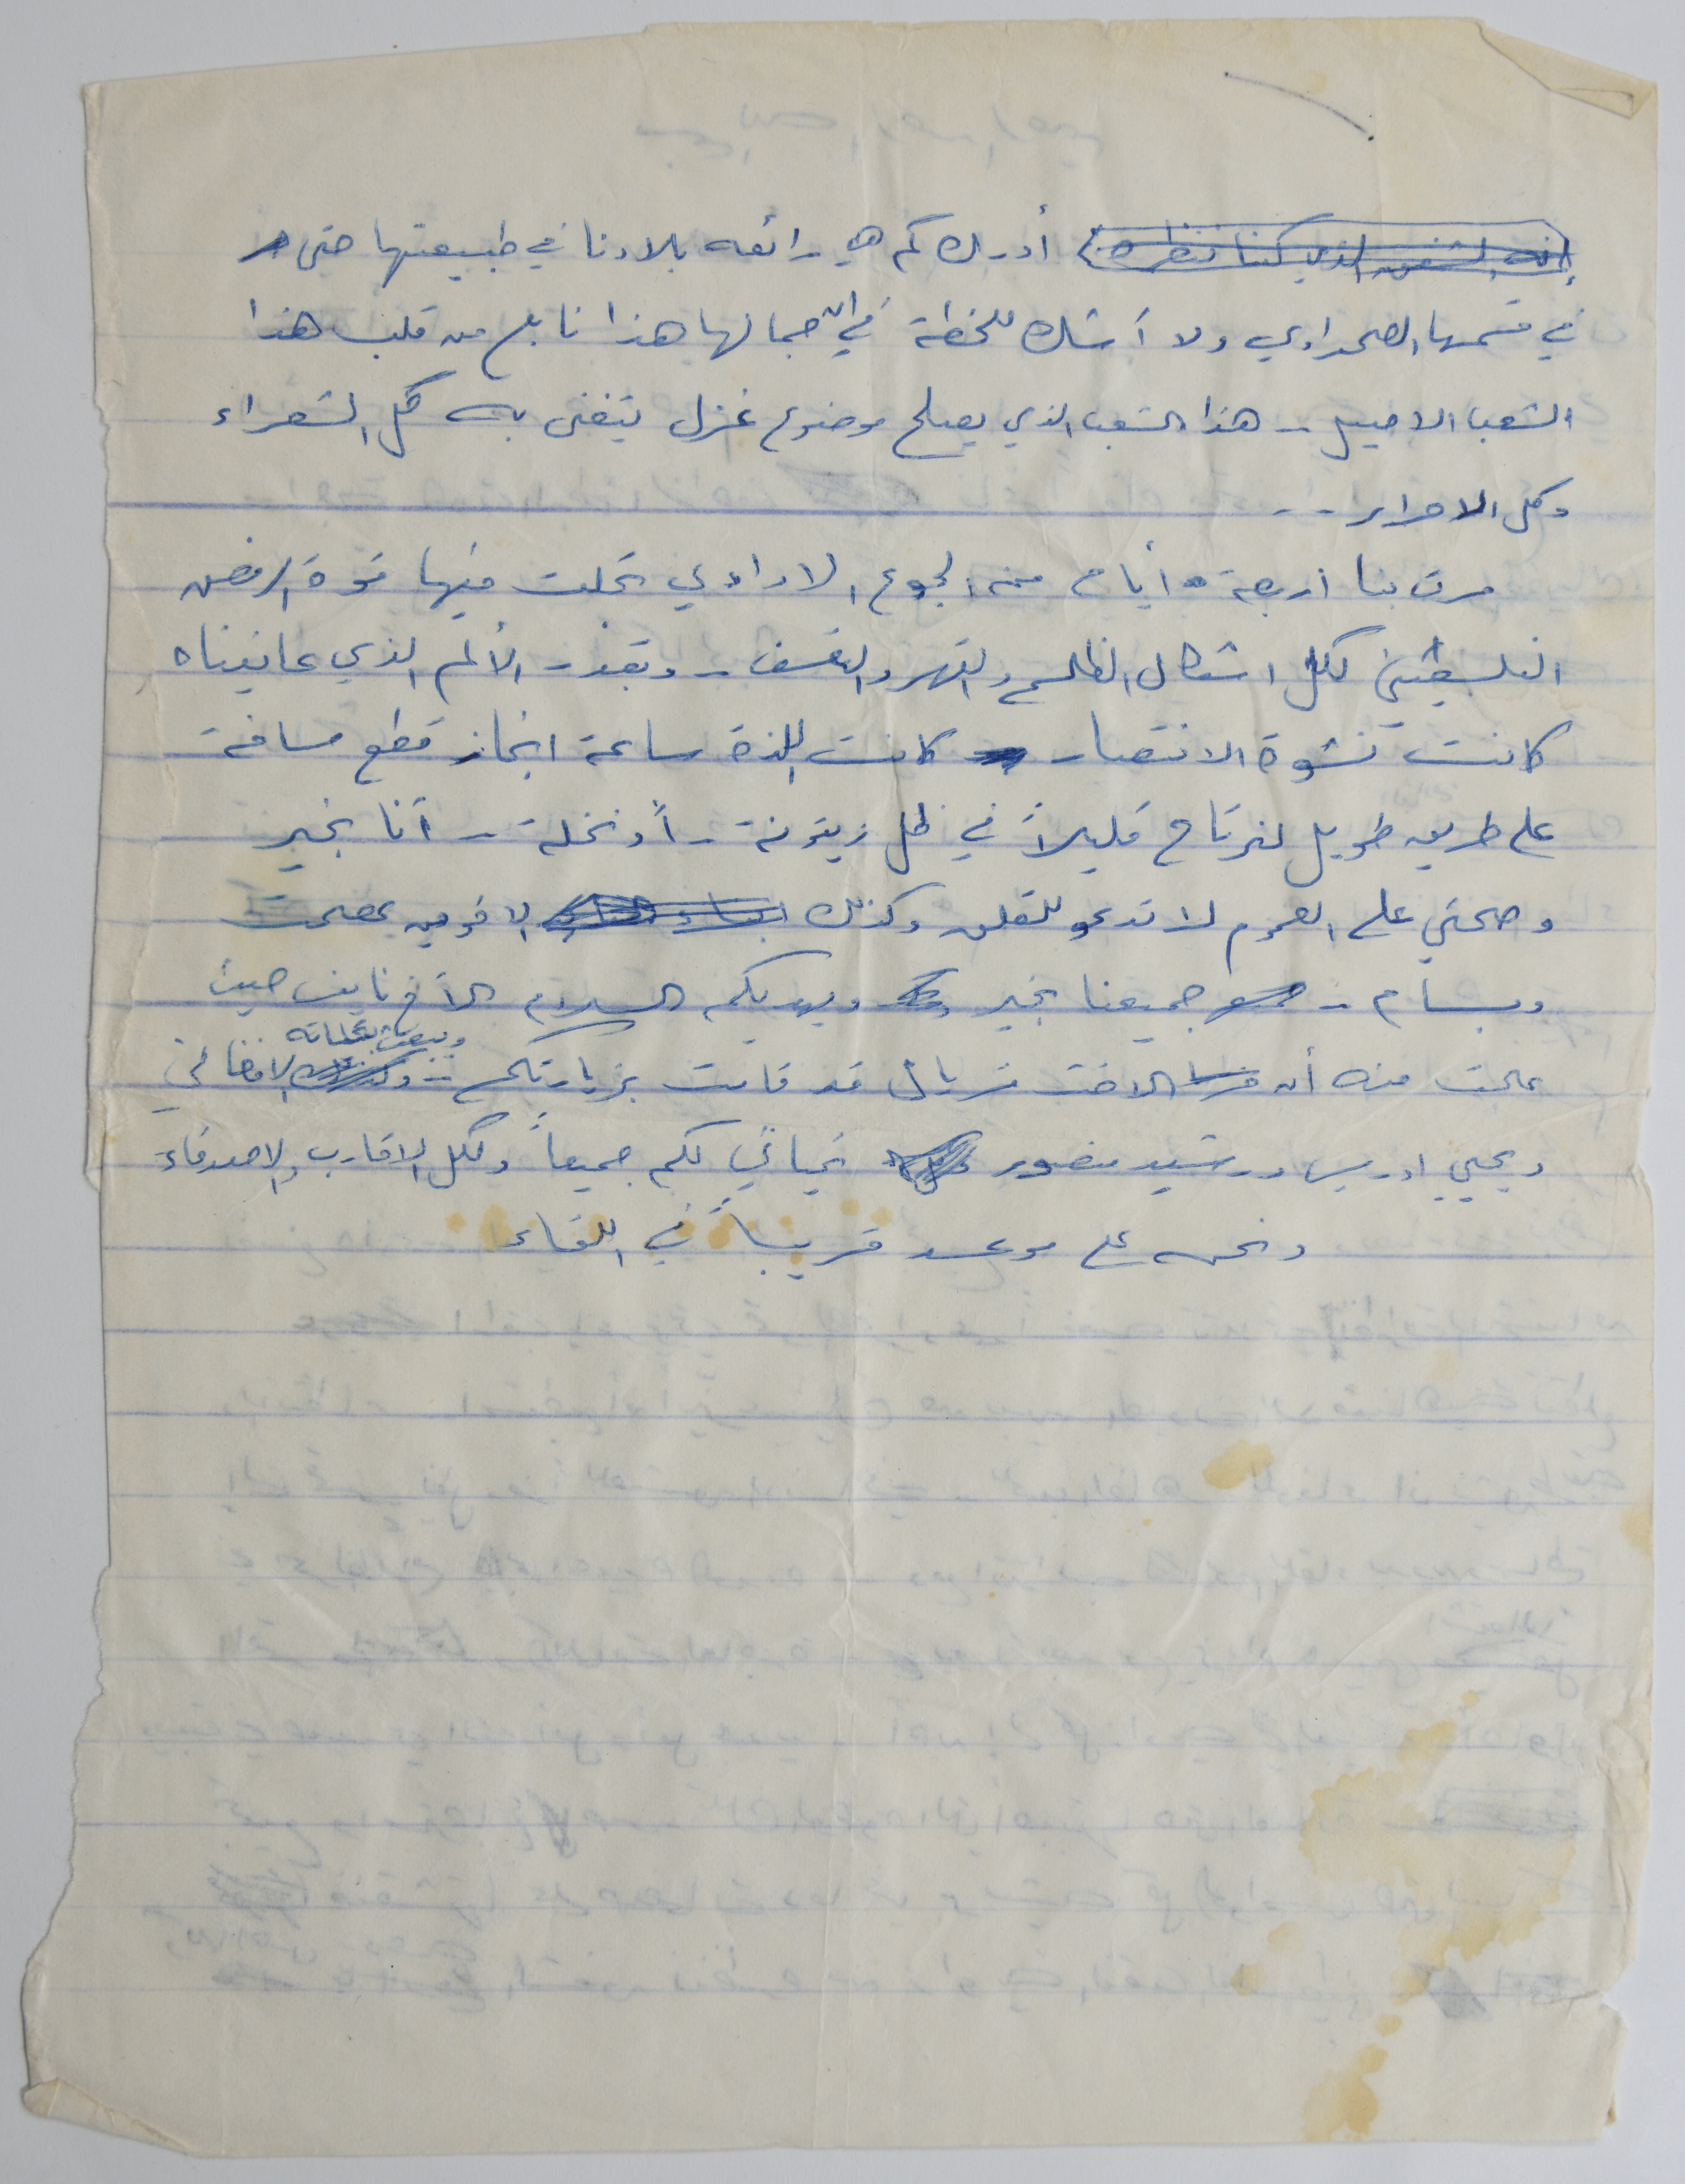 أدرك كم هي رائعه بلادنا في طبيعتها حتى
في قسمها الصحراوي ولا أشك للحظة في ان جمالها هذا نابع من قلب هذا
الشعب الاصيل .. هذا الشعب الذي يصلح موضوع غزل يتغنى به كل الشعراء
وكل الاحرار ..
مرت بنا اربعة أيام من الجوع الارادي تجلت فيها قوة الرفض
الفلسطيني لكل اشكال الظلم والقهر والتعسف .. وبقدر الألم الذي عانيناه
كانت نشوة الانتصار كانت اللذة ساعة انجاز قطع مسافة
على طريق طويل لنرتاح قليلاً في ظل زيتونة - أو نخلة - أنا بخير
وصحتي على العموم لا تدعو للقلق وكذلك الاخوين عصمت
وبسام .. جميعنا بخير ويهديكم السلام الاخ نايف حيث
علمت منه أن الاخت فريال قد قامت بزيارتكم .. الافغاني
ويحيى ادريس ورشيد منصور تحياتي لكم جميعاً ولكل الاقارب والاصدقاء
ونحن على موعد قريباً في اللقاء